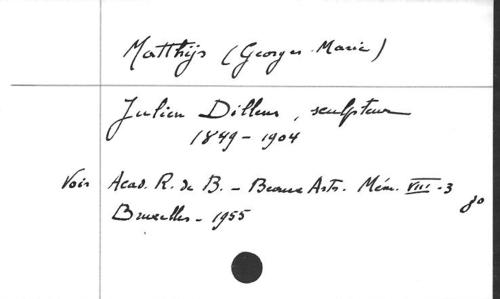 Matthijs (Georges-Marie)
Julien Dillens, sculpteur
1849-1904
Voir Acad. R. de B. - Beaux Arts. Mém. VIII-3
8o
Bruxelles - 1955